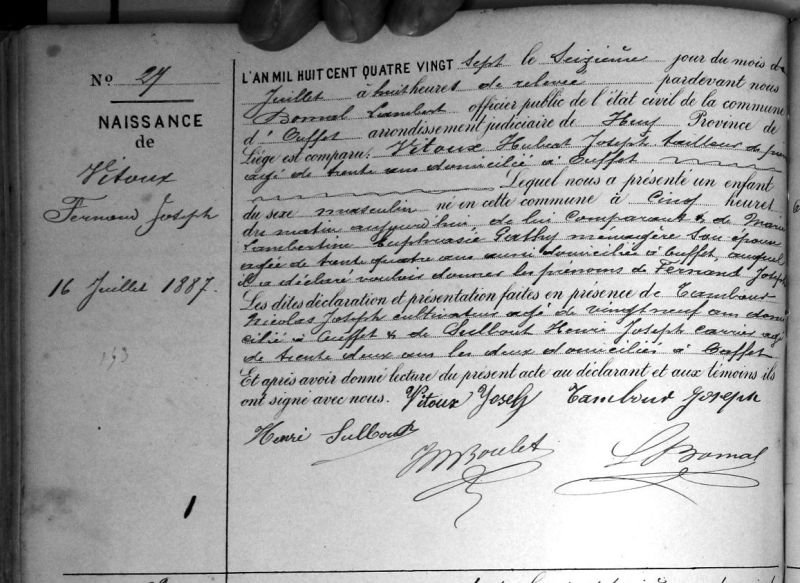 N° 27
NAISSANCE
de
Vitoux
Fernand Joseph
16 Juillet 1887.
193
1
L'AN MIL HUIT CENT QUATRE VINGT Sept le Seizième jour du mois de
Juillet à huit heures de relevée pardevant nous
Bomal Lambert officier public de l'état civil de la commune
d'Ouffet arrondissement judiciaire de Huy Province de
Liége est comparu: Vitoux Hubert Joseph tailleur de
âgé de trente ans domicilié à Ouffet
Lequel nous a présenté un enfant
du sexe masculin né en cette commune à Cinq heures
du matin aujourd'hui de lui Comparant & de Marie
Lambertine Euphrasie Pathy ménagère Son épouse
agée de trente quatre ans aussi domiciliée à Ouffet, auquel
il a déclaré vouloir donner les prénoms de Fernand Joseph
Les dites déclaration et présentation faites en présence de Tambour
Nicolas Joseph cultivateur agé de vingt neuf ans domi
cilié à Ouffet & de Sullout Henri Joseph carrier agé
de trente deux ans les deux domiciliés à Ouffet
Et après avoir donné lecture du présent acte au déclarant et aux témoins ils
ont signé avec nous. Vitoux Joseph Tambour Joseph
Henri Sullout
Boulet
L Bomal